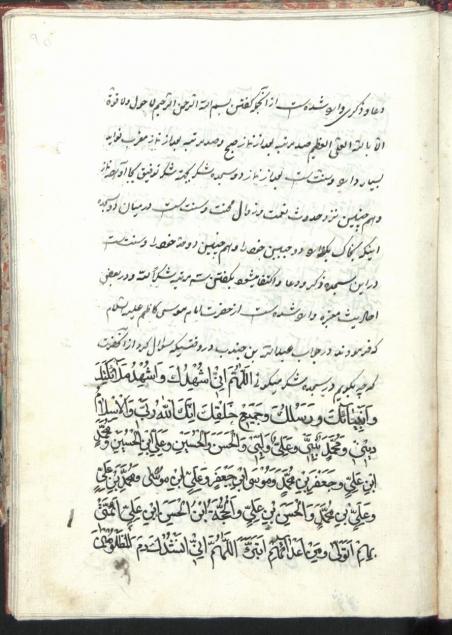 دعا و ذکری وارد شده است از آنجمله گفتن بسم الله الرحمن الرحیم لا حول ولا قوة
الا بالله العلی العظیم صد مرتبه بعد از نماز صبح و صد مرتبه بعد از نماز مغرب فواید
بسیار دارد و سنت است بعد از نماز دو سجده شکر بجهة شکر توفیق بجا آوردن نماز
و هم چنین نزد حدوث نعمت و زوال محنت و سنت است در میان دو سجده
اینکه بخاک بگذارد دو جبین خود را و هم چنین دو خد خود را و سنت است
در این سجده ذکر و دعا و اکتفا میشود بگفتن سه مرتبه شکرا لله و در بعض
احادیث معتبره وارد شده است از حضرت امام موسی کاظم علیه السلام
که فرمودند در جواب عبدالله بن جندب در وقتیکه سؤال کرد از آنحضرت
که چه بگویم در سجده شکر میگوئی اللهم انی اشهدك واشهد ملائکتك
وانبیائك ورسلك وجمیع خلقك انك الله ربی والاسلام
دینی ومحمد نبیی وعلی ولیی والحسن والحسین وعلی ابن الحسین ومحمد
ابن علی وجعفر بن محمد وموسی ابن جعفر وعلی ابن موسی ومحمد بن علی
وعلی بن محمد والحسن بن علی والحجة ابن الحسن ابن علی ائمتی
بهم اتولی ومن اعدائهم اتبرء اللهم انی انشدك دم المظلوم